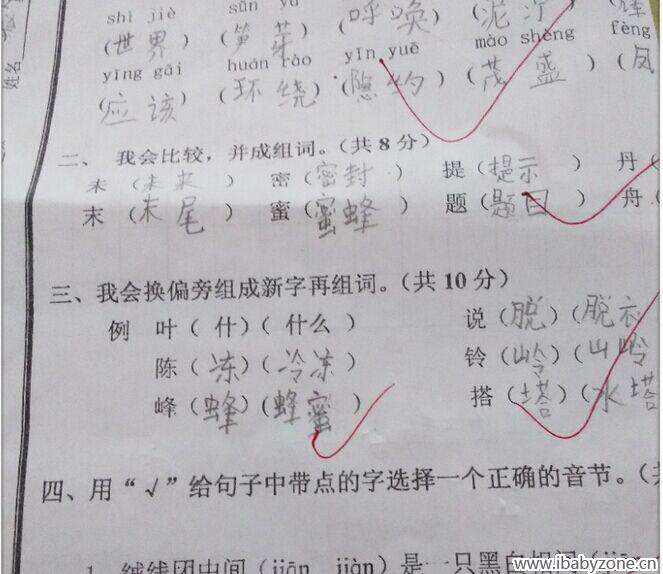 姓名
shì jiè
(世界)(笋芽)(呼唤)(泥泞)
yīng gāi huán rào yīn yuē mào shèng fèng
(应该)(环绕)(隐约)(茂盛)(凤
二、 我会比较，并成组词。(共 8 分)
未 (未来) 密 (密封) 提 (提示) 丹 (
末 (末尾) 蜜 (蜜蜂) 题 (题目) 舟 (
三、我会换偏旁组成新字再组词。(共 10 分)
例 叶 (什)(什么) 说 (脱)(脱衣
陈 (冻)(冷冻) 铃 (岭)(山岭
峰 (蜂)(蜂蜜) 搭 (塔)(水塔
四、用“√”给句子中带点的字选择一个正确的音节。(共
1. 绒线团中间 (jiān jiàn) 是一只黑白相间
www.ibabyzone.cn